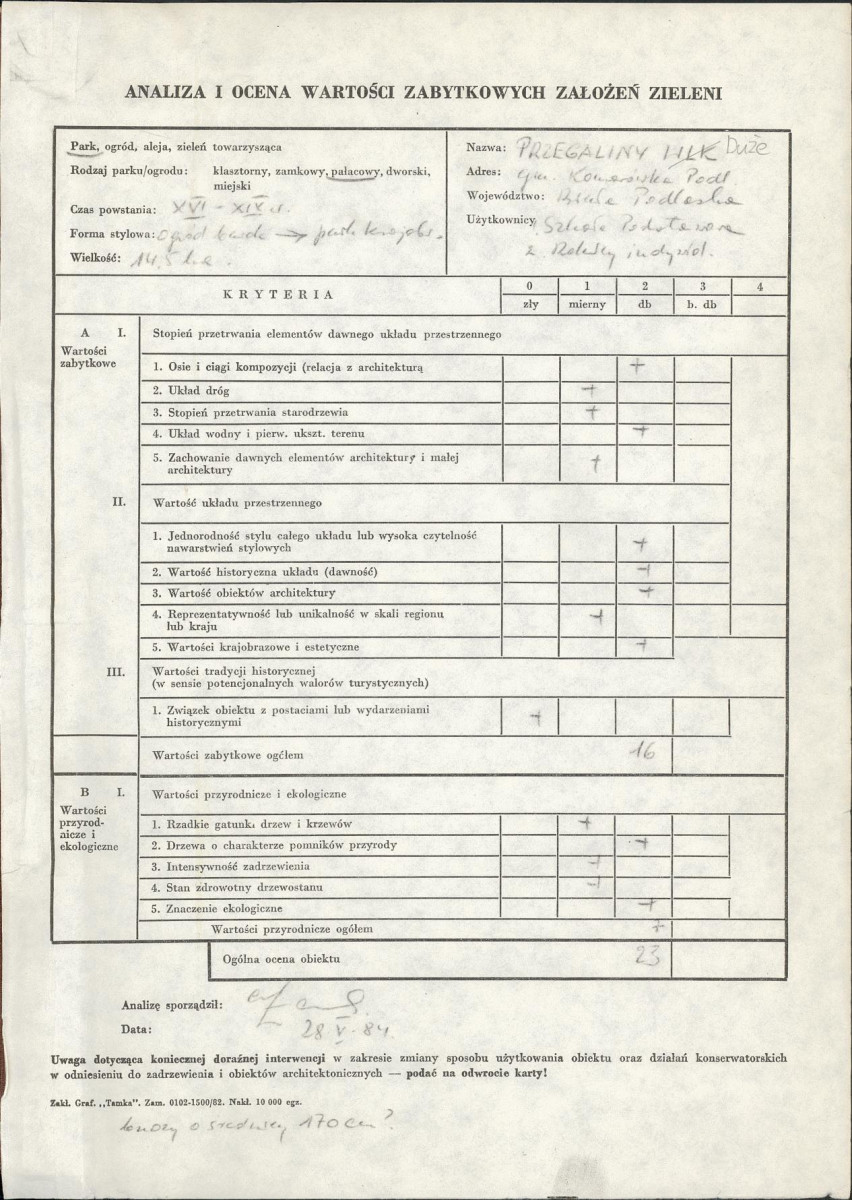 ANALIZA I OCENA WARTOŚCI ZABYTKOWYCH ZAŁOŻEŃ ZIELENI
Park, ogród, aleja, zieleń towarzysząca
Rodzaj parku/ogrodu: klasztorny, zamkowy, pałacowy, dworski,
miejski
Czas powstania: XVI - XIX w.
Forma stylowa: ogród → park krajobr.
Wielkość: 14,5 ha.
Nazwa: PRZEGALINY Duże
Adres: gm. Komarówka Podl
Województwo: Biała Podlaska
Użytkownicy Szkoła Podstawowa
2. Rolnicy indywid.
KRYTERIA 0 1 2 3 4
zły mierny db b. db
A I. Stopień przetrwania elementów dawnego układu przestrzennego
Wartości
zabytkowe
1. Osie i ciągi kompozycji (relacja z architekturą +
2. Układ dróg +
3. Stopień przetrwania starodrzewia +
4. Układ wodny i pierw. ukszt. terenu +
5. Zachowanie dawnych elementów architektury i małej
architektury +
II. Wartość układu przestrzennego
1. Jednorodność stylu całego układu lub wysoka czytelność
nawarstwień stylowych +
2. Wartość historyczna układu (dawność) +
3. Wartość obiektów architektury +
4. Reprezentatywność lub unikalność w skali regionu
lub kraju +
5. Wartości krajobrazowe i estetyczne +
III. Wartości tradycji historycznej
(w sensie potencjonalnych walorów turystycznych)
1. Związek obiektu z postaciami lub wydarzeniami
historycznymi +
Wartości zabytkowe ogółem 16
B I. Wartości przyrodnicze i ekologiczne
Wartości
przyrod-
nicze i
ekologiczne
1. Rzadkie gatunki drzew i krzewów +
2. Drzewa o charakterze pomników przyrody +
3. Intensywność zadrzewienia +
4. Stan zdrowotny drzewostanu +
5. Znaczenie ekologiczne +
Wartości przyrodnicze ogółem 7
Ogólna ocena obiektu 23
Analizę sporządził:
Data: 28 V. 84.
Uwaga dotycząca koniecznej doraźnej interwencji w zakresie zmiany sposobu użytkowania obiektu oraz działań konserwatorskich
w odniesieniu do zadrzewienia i obiektów architektonicznych — podać na odwrocie karty!
Zakł. Graf. „Tamka". Zam. 0102-1500/82. Nakł. 10 000 egz.
o średnicy 170 cm?